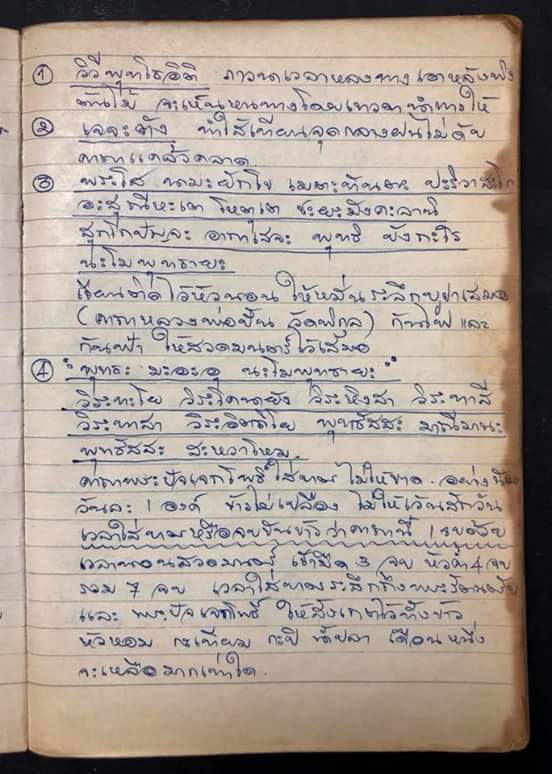 ① วิวิพุทโธอิติ ภาวนาเวลาหลงทาง เอาหลังพิง
ต้นไม้ จะเห็นหนทางโดยเทวดานำทางให้
② เจจะตัง ทำไส้เทียนจุดกลางฝนไม่ดับ
คาถาแคล้วคลาด
③ พระโส นามะยักโข เมตะทันตา ปะริวาสะโก
อะสุณีหะเต โหตุเต ชะยะมังคะลานิ
สุกโกปัญจะ อากาเสจะ พุทธิ ยังกะโร
นะโมพุทธายะ
เขียนติดไว้หัวนอน ให้หมั่นระลึกบูชาเสมอ
(คาถาหลวงพ่อปื้น วัดพิกุล) กันไฟ และ
กันฟ้า ให้สวดมนตร์ไว้เสมอ
④ "พุทธะ มะอะอุ นะโมพุทธายะ"
วิระทะโย วิระโคนายัง วิระหิงสา วิระทาสี
วิระทาสา วิระอิตถิโย พุทธัสสะ มาณีมามะ
พุทธัสสะ สะหวาโหม.
คาถาพระปัจเจกโพธิ์ ใส่บาตร ไม่ให้ขาด อย่างน้อย
วันละ 1 องค์ ข้าวไม่เปลือง ไม่ให้เว้นสักวัน
เวลาใส่บาตรหรือจบขันข้าวว่าคาถานี้ 1 จบด้วย
เวลานอนสวดมนตร์ เช้ามืด 3 จบ หัวค่ำ 4 จบ
รวม 7 จบ เวลาใส่บาตรระลึกถึงพระรัตนตรัย
และ พระปัจเจกโพธิ์ ให้สังเกตไว้ทั้งข้าว
หัวหอม กระเทียม กะปิ น้ำปลา เดือนหนึ่ง
จะเหลือมากเท่าใด.